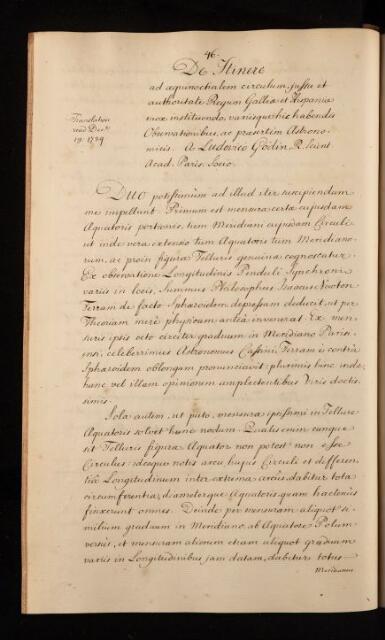 46.
De Itinere
ad æquinoctialem circulum, jussu et
authoritate Regum Galliæ et Hispaniæ
mox instituendo, variisque hic habendis
Observationibus, ac præsertim Astrono-
micis. A Ludovico Godin, R. Scient.
Acad. Paris. Socio.
Translation
read Decr.
19. 1734
Duo potissimum ad illud iter suscipiendum
me impellunt. Primum est mensura certæ cujusdam
Æquatoris portionis, tum Meridiani cujusdam Circuli
ut inde vera extensio tum Æquatoris tum Meridiano-
rum, ac proin figura Telluris genuina cognoscatur.
Ex observatione Longitudinis Penduli Synchroni
variis in locis, summus Philosophus Isaacus Newton
Terram de facto Sphæroidem depressam deducit, ut per
Theoriam merè physicam anteà invenerat. Ex men-
suris ipsis octo circiter graduum in Meridiano Parisi-
ensi, celeberrimus Astronomus Cassini, Terram è contrà
Sphæroidem oblongam pronunciavit: plurimis hinc inde
hanc vel illam opinionem amplectentibus Viris doctis-
simis.
Sola autem, ut puto, mensura ipsissimi in Tellure
Æquatoris solvet hunc nodum. Qualiscumque enim
sit Telluris figura Æquator non potest non esse
Circulus: ideoque notis arcu hujus Circuli et differen-
tiâ Longitudinum inter extrema arcûs, dabitur tota
circumferentia, diameterque Æquatoris quam hactenùs
finxerunt omnes. Deinde per mensuram aliquot si-
milium graduum in Meridiano, ab Æquatore Polum
versùs, et mensuram aliorum etiam aliquot graduum
variis in Longitudinibus jam datam, dabitur totus
Meridianus